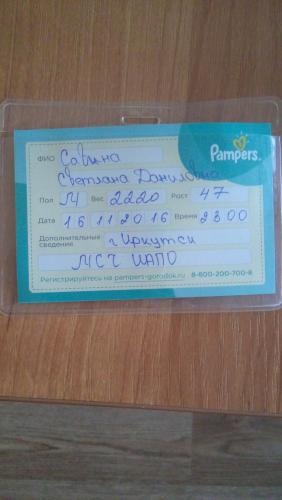 Pampers.
ФИО Савина
Светлана Даниловна
Пол М Вес 2220 Рост 47
Дата 16 11 20 16 Время 23 00
Дополнительные сведения г Иркутск
МСЧ ИАПО
Регистрируйтесь на pampers-gorodok.ru 8-800-200-700-8